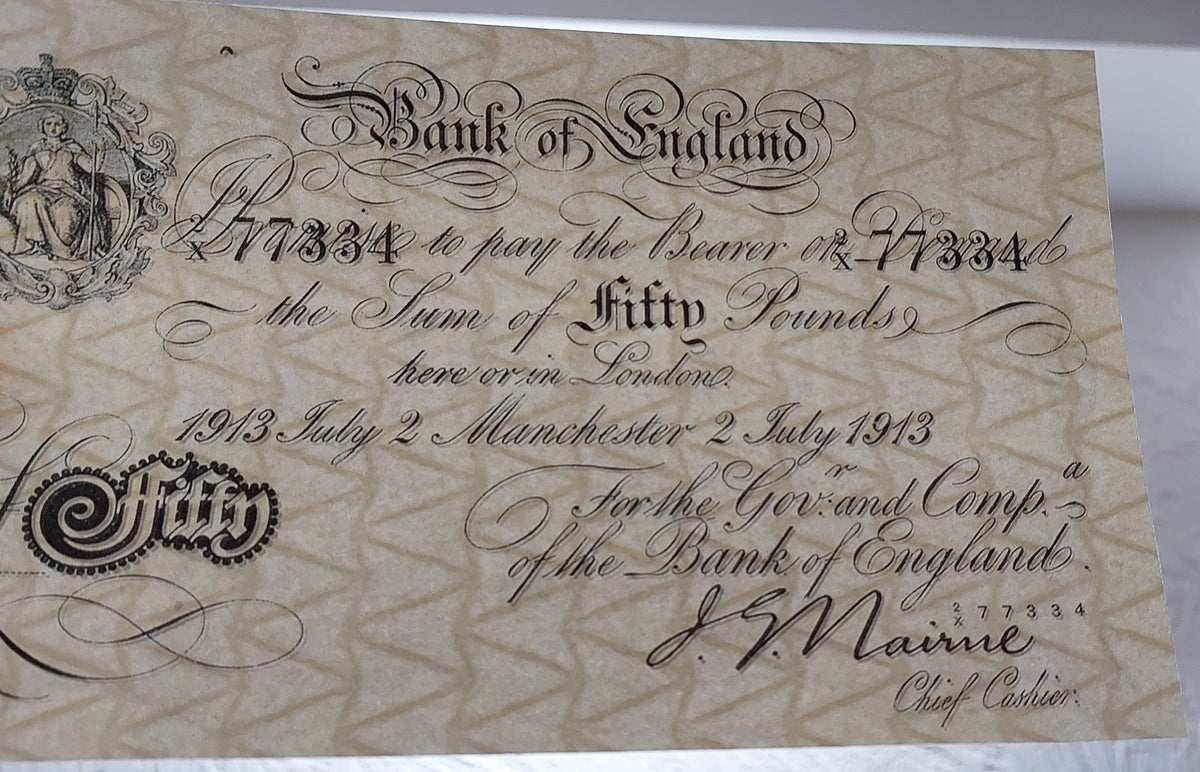 Bank of England
I Promise to pay the Bearer on Demand
2/X 77334 2/X 77334
the Sum of Fifty Pounds
here or in London.
1913 July 2 Manchester 2 July 1913
For the Gov:r and Comp.a
of the Bank of England.
Fifty
2/X 77334
J. G. Nairne
Chief Cashier.